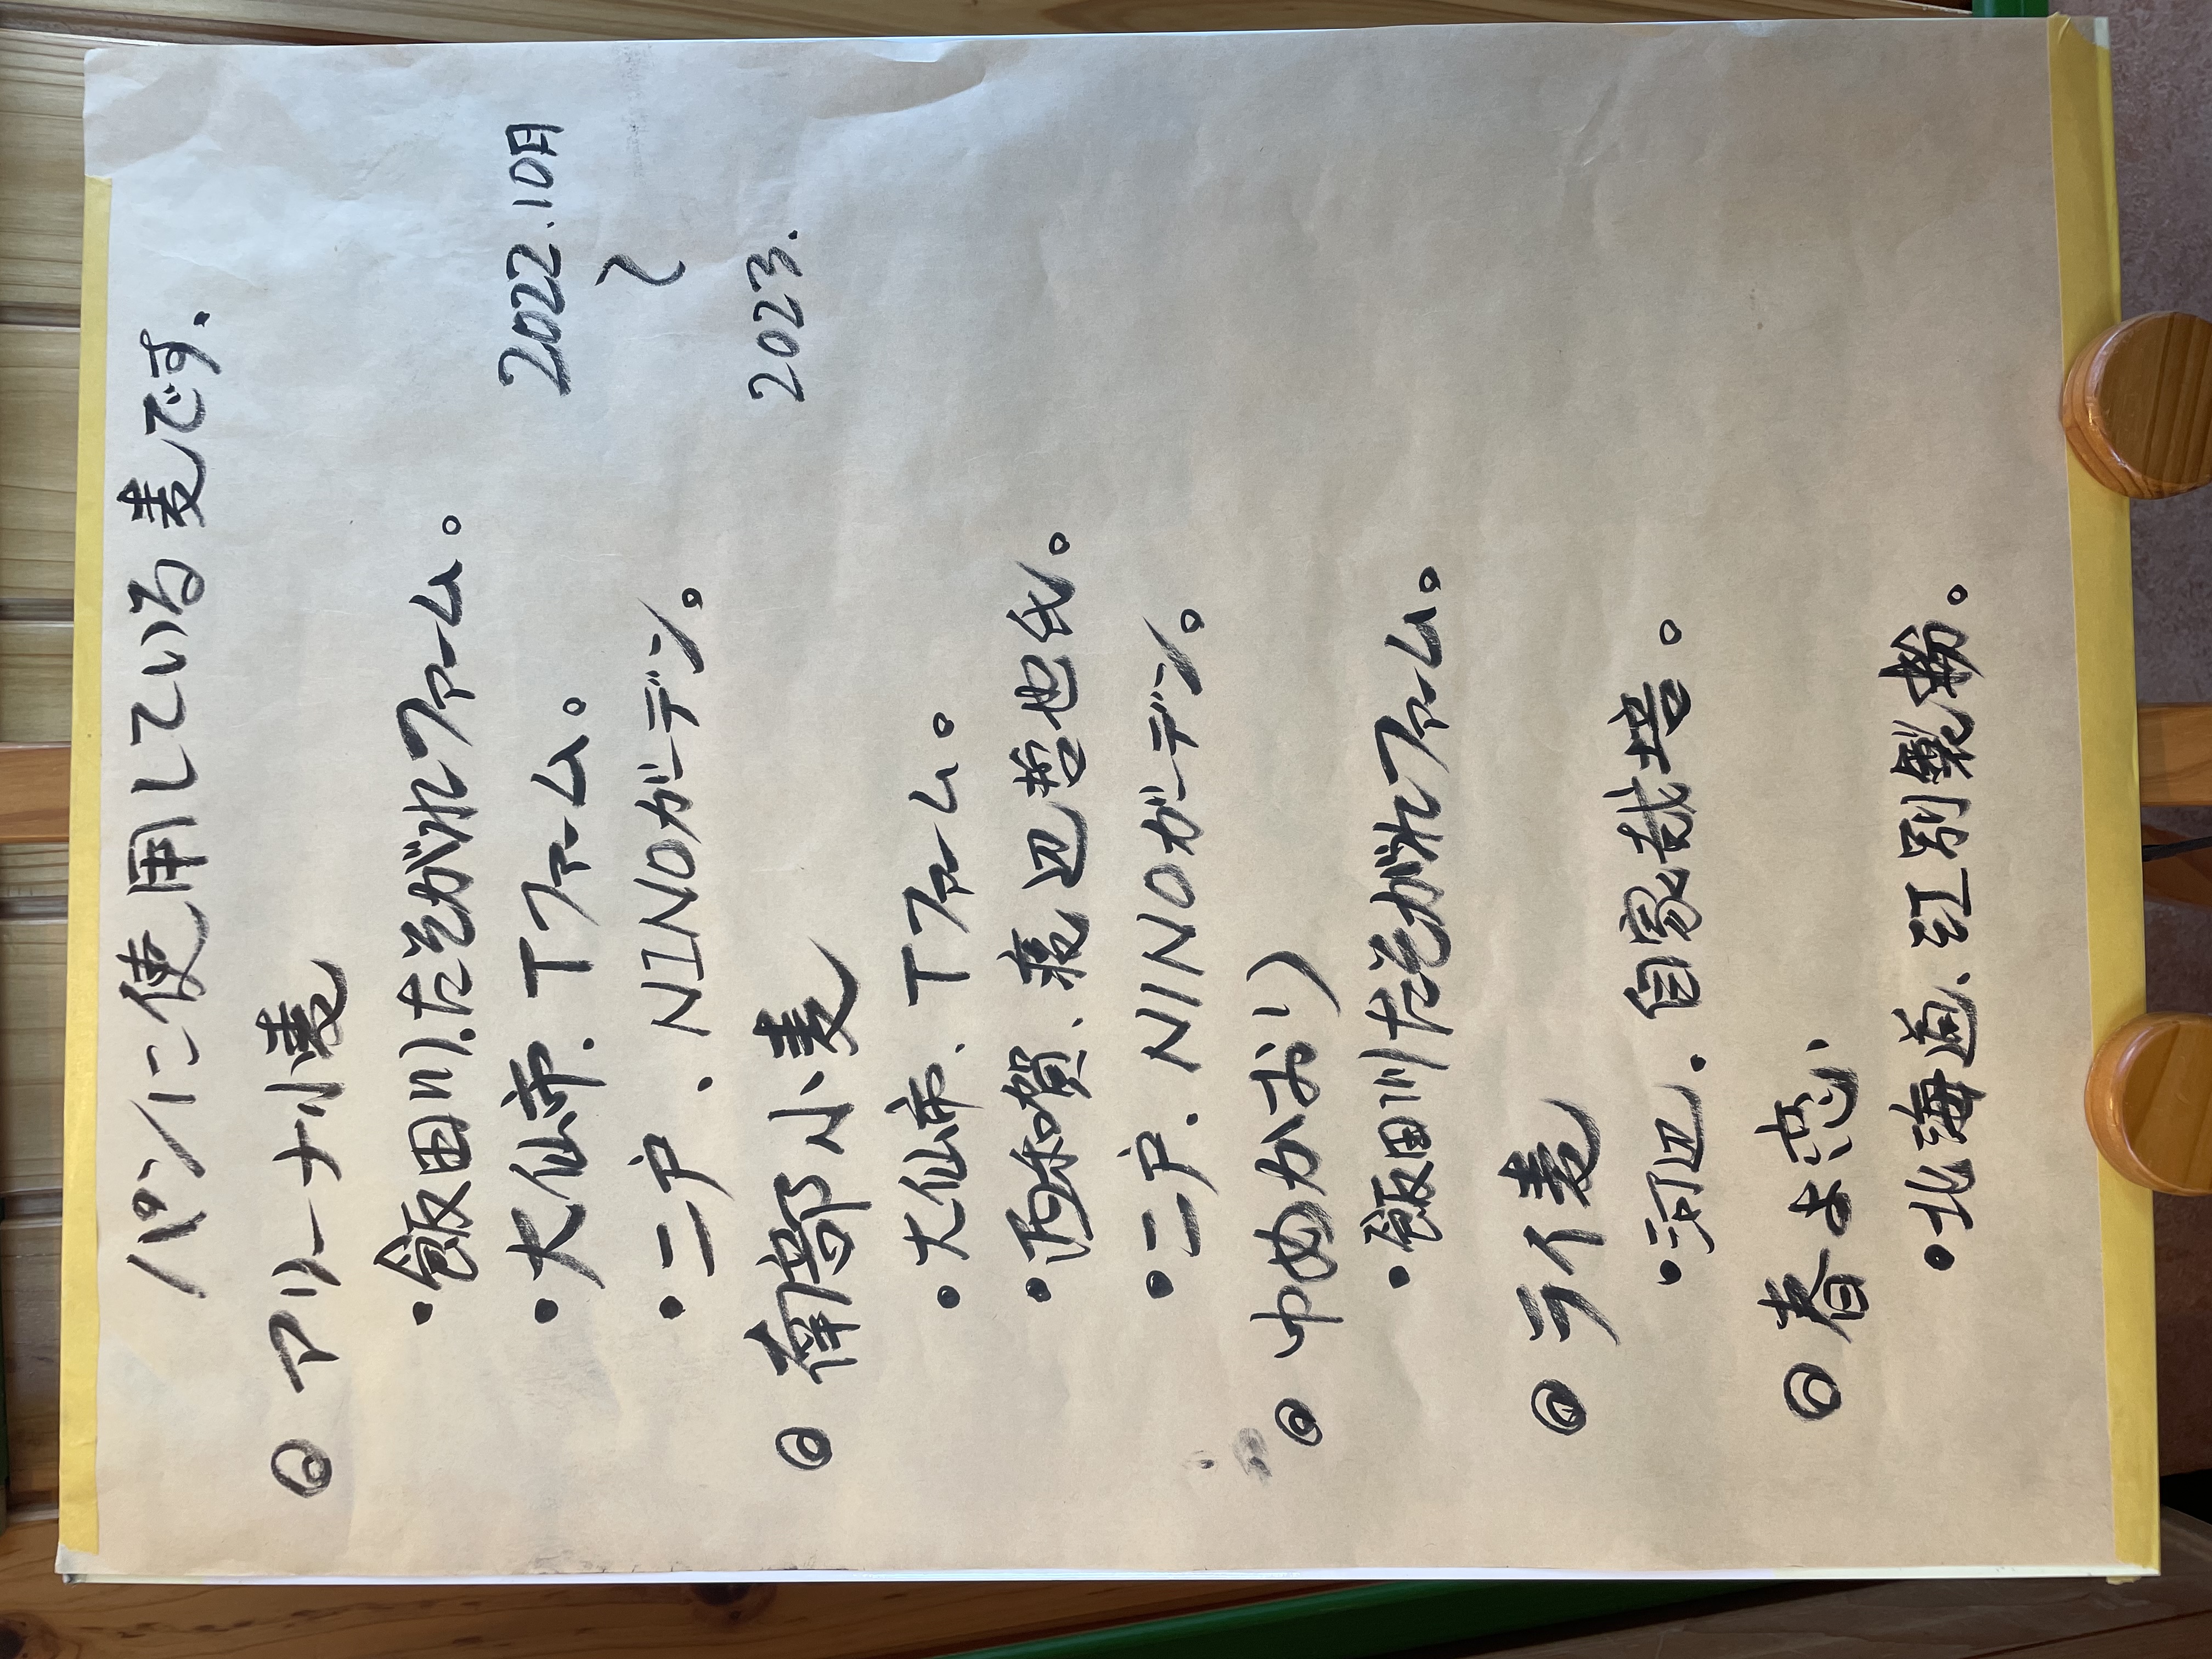 パンに使用している麦です.
◎ アリーナ小麦
・飯田川.たそがれファーム。
・大仙市.Tファーム。
2022.10月
〜
2023.
・二戸.NINOガーデン。
◎ 南部小麦
・大仙市、Tファーム。
・西和賀、渡辺哲也氏。
・二戸.NINOガーデン。
◎ ゆめかおり
・飯田川たそがれファーム。
◎ ライ麦
・河辺.自家栽培。
◎ 春よ恋.
・北海道、江別製粉。